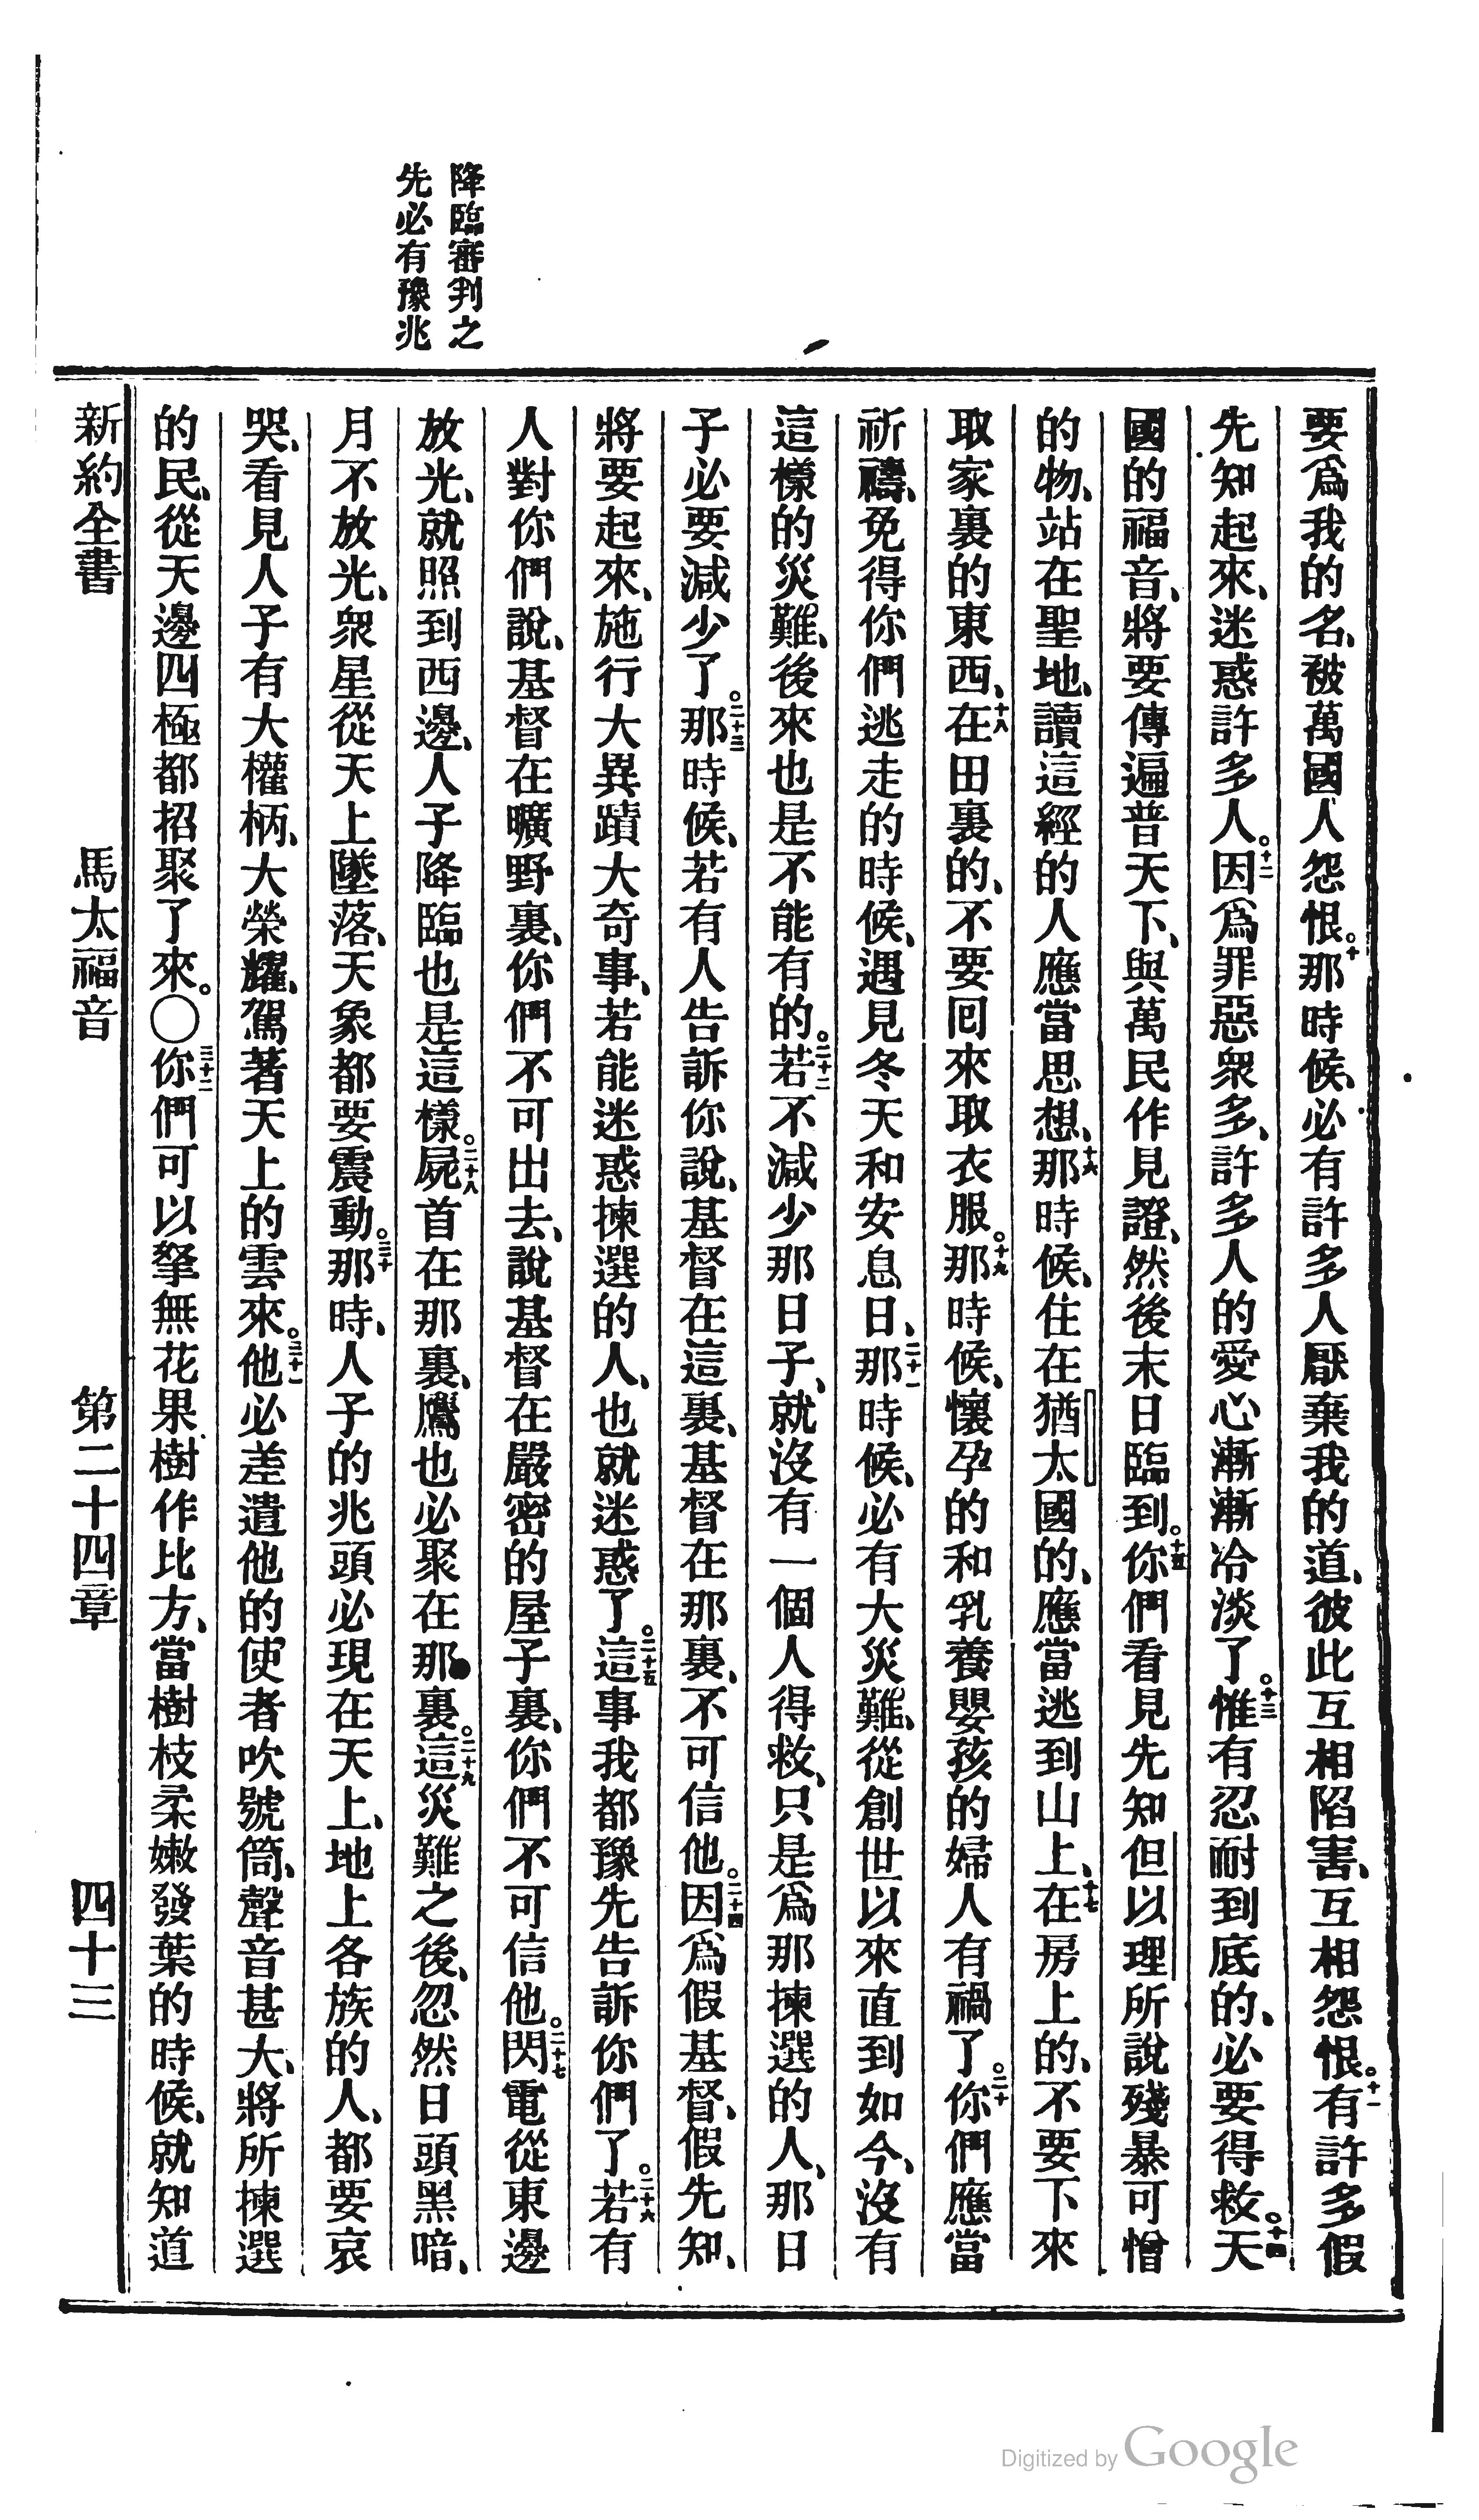 降臨審判之
先必有豫兆
要爲我的名、被萬國人怨恨。十那時候、必有許多人厭棄我的道、彼此互相陷害、互相怨恨。十一有許多假
先知起來、迷惑許多人。十二因爲罪惡衆多、許多人的愛心漸漸冷淡了。十三惟有忍耐到底的、必要得救。十四天
國的福音、將要傳遍普天下、與萬民作見證、然後末日臨到。十五你們看見先知但以理所說殘暴可憎
的物、站在聖地、讀這經的人應當思想、十六那時候、住在猶太國的、應當逃到山上、十七在房上的、不要下來
取家裏的東西、十八在田裏的、不要回來取衣服。十九那時候、懷孕的和乳養嬰孩的婦人有禍了。二十你們應當
祈禱、免得你們逃走的時候、遇見冬天和安息日、二十一那時候、必有大災難、從創世以來直到如今、沒有
這樣的災難、後來也是不能有的。二十二若不減少那日子、就沒有一個人得救、只是爲那揀選的人、那日
子必要減少了。二十三那時候、若有人告訴你說、基督在這裏、基督在那裏、不可信他。二十四因爲假基督、假先知、
將要起來、施行大異蹟大奇事、若能迷惑揀選的人、也就迷惑了。二十五這事我都豫先告訴你們了。二十六若有
人對你們說、基督在曠野裏、你們不可出去、說基督在嚴密的屋子裏、你們不可信他。二十七閃電從東邊
放光、就照到西邊、人子降臨也是這樣。二十八屍首在那裏、鷹也必聚在那裏。二十九這災難之後、忽然日頭黑暗、
月不放光、衆星從天上墜落、天象都要震動。三十那時、人子的兆頭必現在天上、地上各族的人、都要哀
哭、看見人子有大權柄、大榮耀、駕著天上的雲來。三十一他必差遣他的使者吹號筒、聲音甚大、將所揀選
的民、從天邊四極都招聚了來。〇三十二你們可以拏無花果樹作比方、當樹枝柔嫩發葉的時候、就知道
新約全書 馬太福音 第二十四章 四十三
Digitized by Google